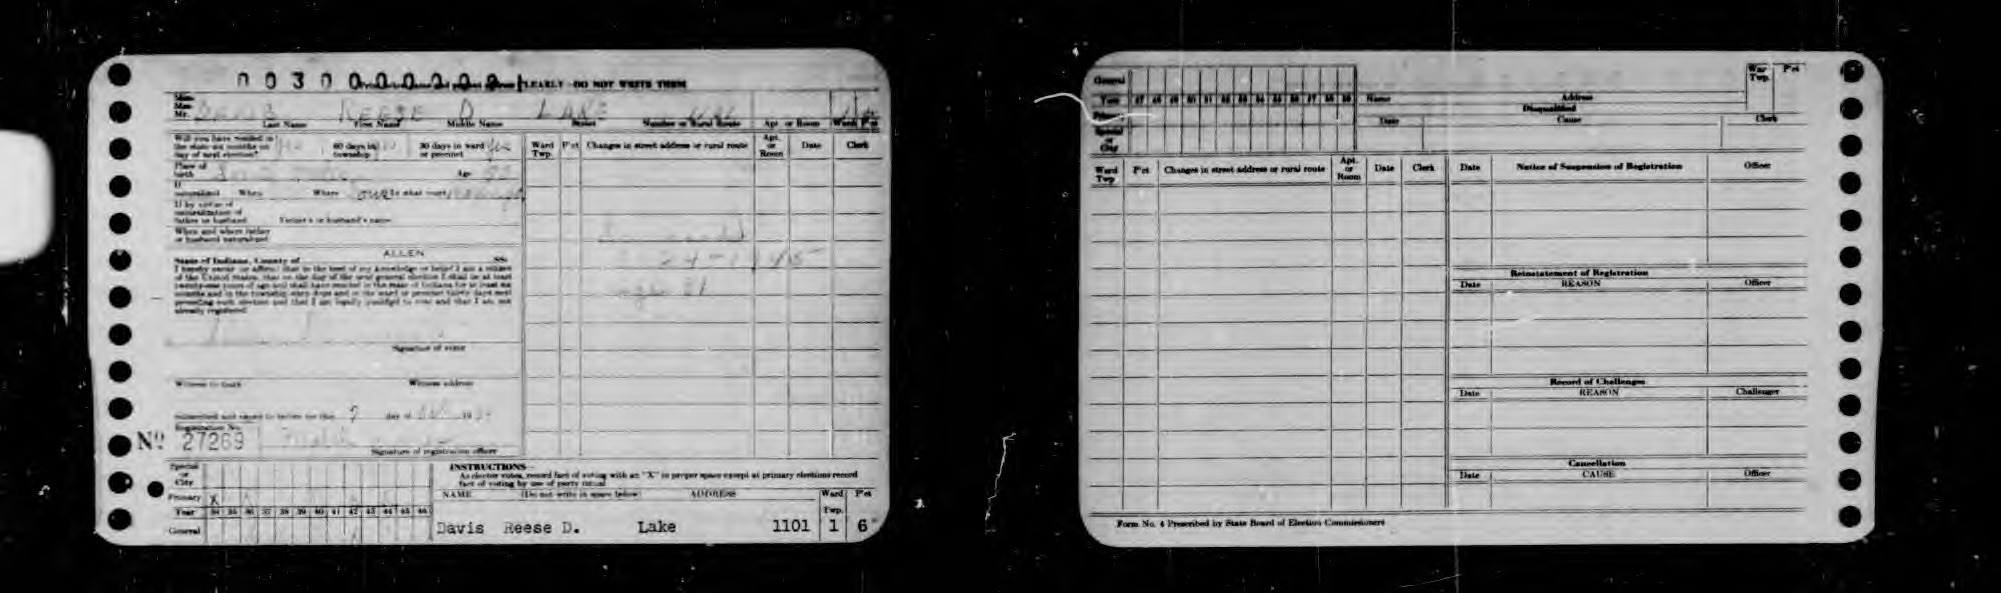 0 0 3 0 0 0 0 0 0 0 0 CLEARLY DO NOT WRITE THEM
Miss
Mrs.
Mr. DAVIS REESE D LAKE
Last Name First Name Middle Name Street Number or Rural Route Apt. or Room Ward P'ct
Will you have resided in the state six months on day of next election? 60 days in township 30 days in ward or precinct yes
Place of birth Age
If naturalized When Where In what court
If by virtue of naturalization of father or husband Father's or husband's name
When and where father or husband naturalized
State of Indiana, County of ALLEN SS:
I hereby swear or affirm that to the best of my knowledge or belief I am a citizen
of the United States, that on the day of the next general election I shall be at least
twenty-one years of age and shall have resided in the state of Indiana for at least six
months and in the township sixty days and in the ward or precinct thirty days next
preceding such election and that I am legally qualified to vote and that I am not
already registered
Signature of voter
Witness to mark Witness address
Subscribed and sworn to before me this 5 day of 19
Registration No.
Nº 27269
Signature of registration officer
Ward Twp. P'ct Changes in street address or rural route Apt. or Room Date Clerk
Special or City
Primary X
Year 34 35 36 37 38 39 40 41 42 43 44 45 46
General
INSTRUCTIONS
As elector votes, record fact of voting with an "X" in proper space except at primary elections record
fact of voting by use of party initial
NAME (Do not write in space below) ADDRESS Ward Twp. P'ct
Davis Reese D. Lake 1101 1 6
General
Year 47 48 49 50 51 52 53 54 55 56 57 58 59
Primary
Special or City
Name Address War Twp. P'ct
Disqualified
Date Cause Clerk
Ward Twp P'ct Changes in street address or rural route Apt. or Room Date Clerk
Date Notice of Suspension of Registration Officer
Reinstatement of Registration
Date REASON Officer
Record of Challenges
Date REASON Challenger
Cancellation
Date CAUSE Officer
Form No. 4 Prescribed by State Board of Election Commissioners